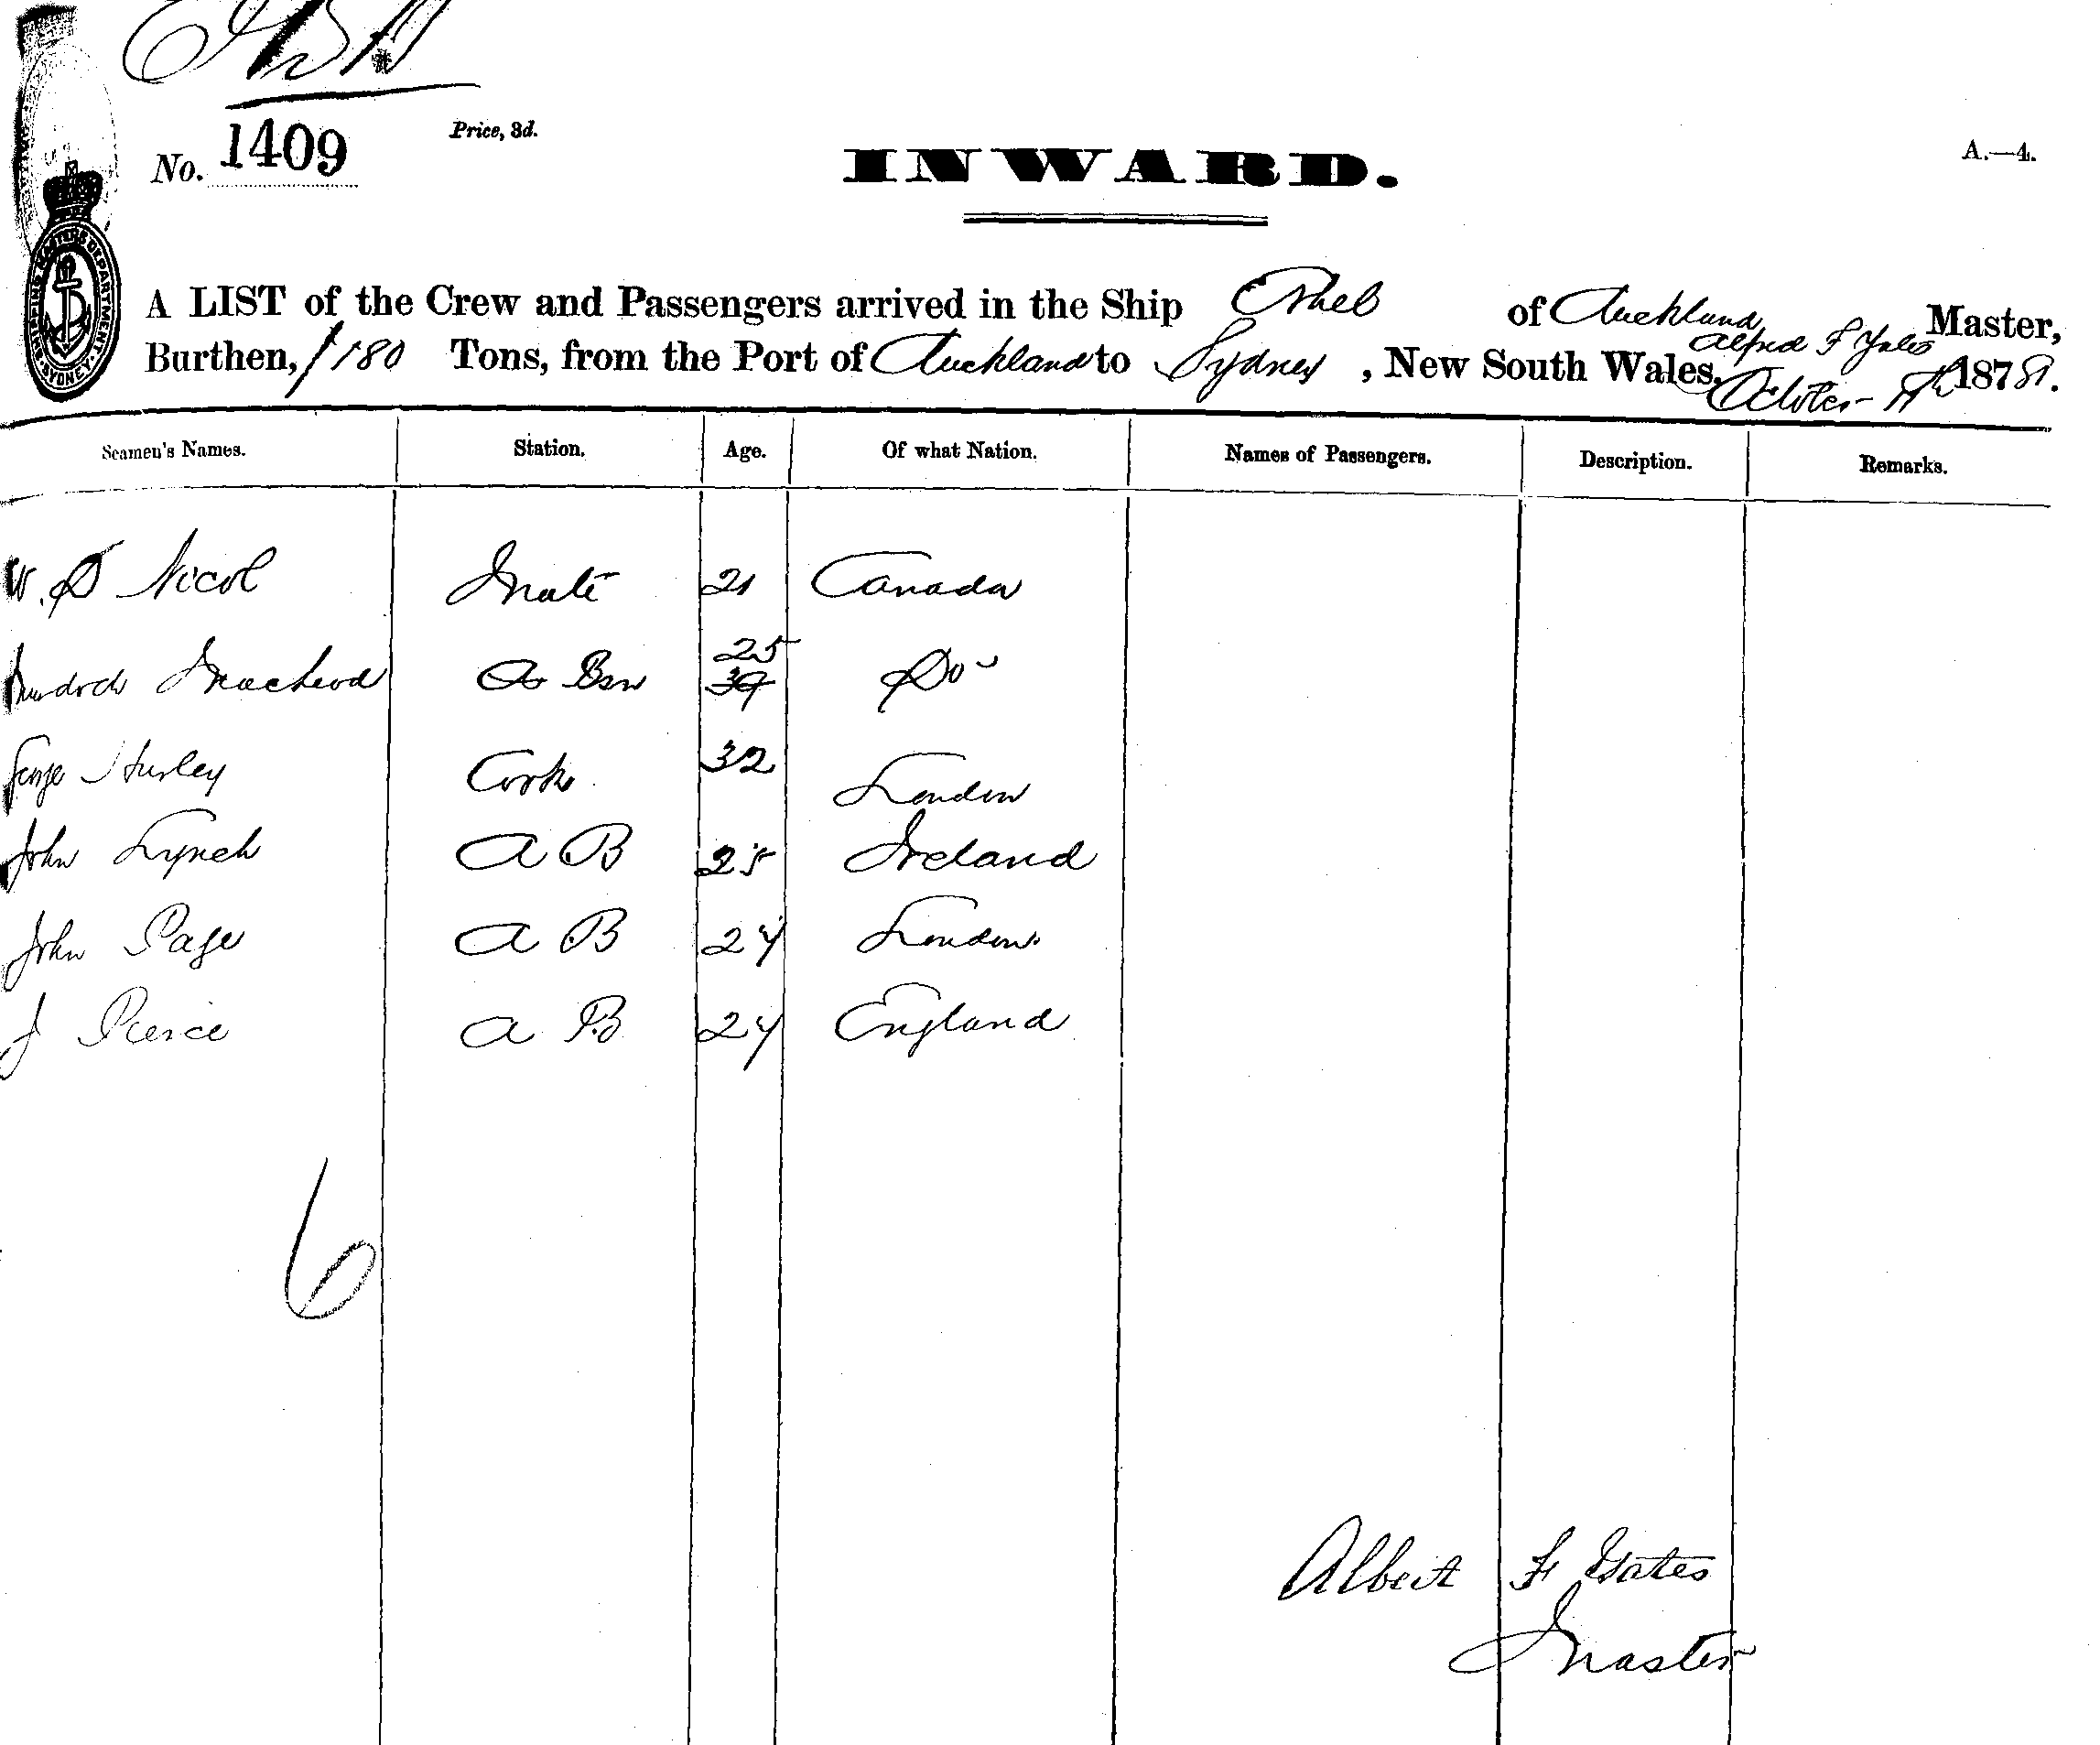 No. 1409
Price, 3d.
INWARD.
A.—4.
SHIPPING MASTERS DEPARTMENT. SYDNEY.
A LIST of the Crew and Passengers arrived in the Ship Ethel of Auckland Alfred F Yates Master,
Burthen, 180 Tons, from the Port of Auckland to Sydney, New South Wales, October 187
Seamen's Names. Station. Age. Of what Nation. Names of Passengers. Description. Remarks.
W. D Nicol Mate 21 Canada
Murdoch Macleod Bsn 25 39 Do
George Hurley Cook 32 London
John Lynch A B 25 Ireland
John Page A B 24 London
J Pierce A B 24 England
6
Albert F Yates
Master